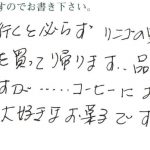 すのでお書き下さい。
行くと必らず リンゴの
を買って帰ります..品
すが……コーヒーに
大好きなお菓子です